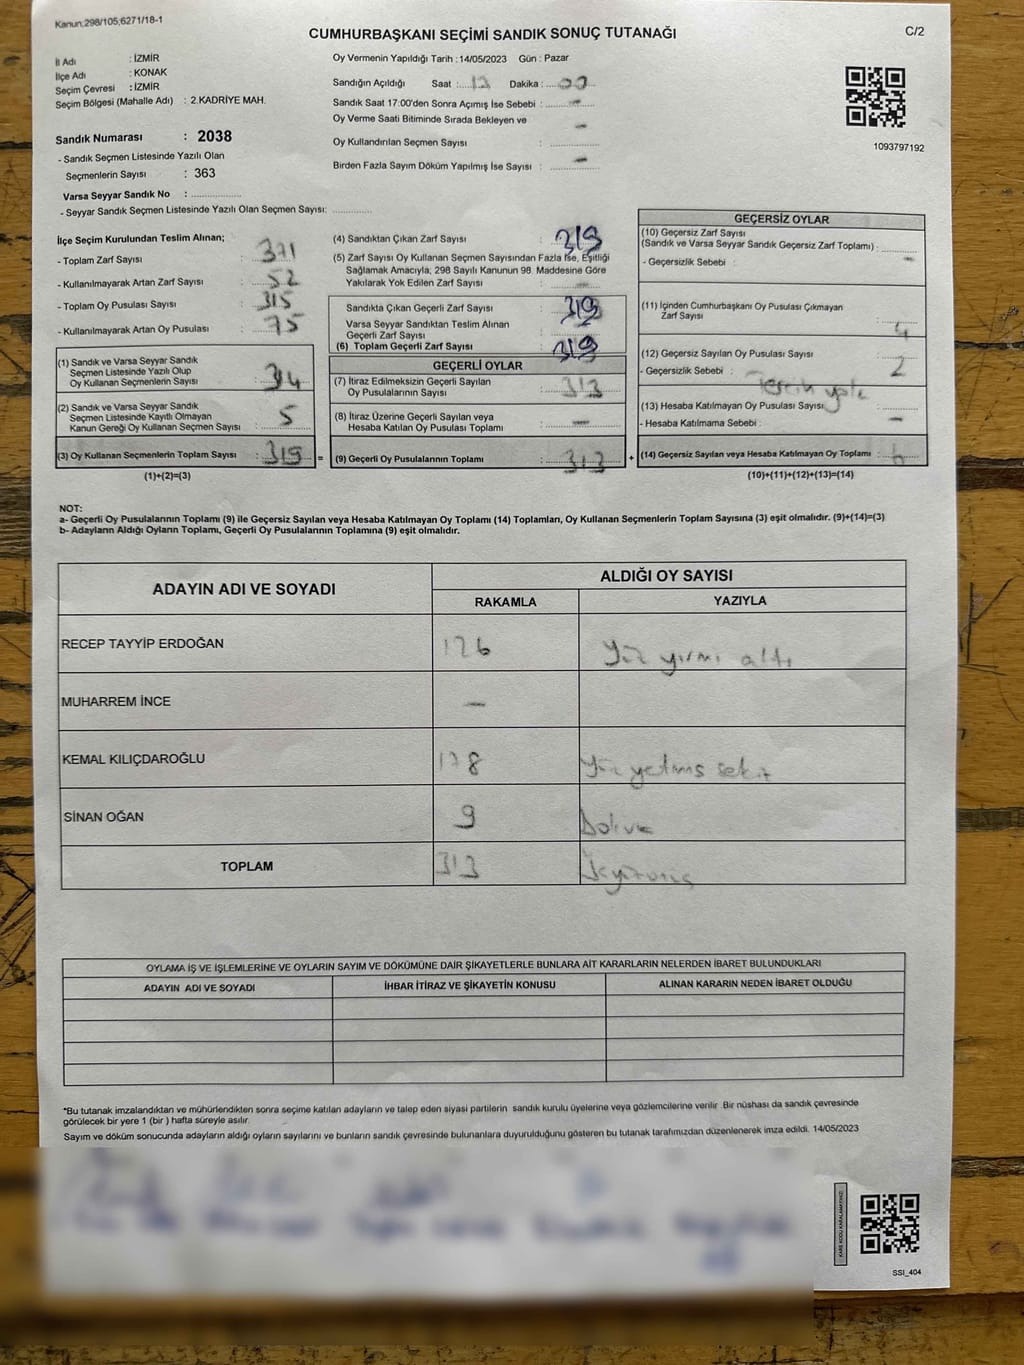 Kanun:298/105,6271/18-1
CUMHURBAŞKANI SEÇİMİ SANDIK SONUÇ TUTANAĞI
C/2
İl Adı : İZMİR
İlçe Adı : KONAK
Seçim Çevresi : İZMİR
Seçim Bölgesi (Mahalle Adı) : 2.KADRİYE MAH.
Sandık Numarası : 2038
- Sandık Seçmen Listesinde Yazılı Olan
Seçmenlerin Sayısı : 363
Varsa Seyyar Sandık No :
- Seyyar Sandık Seçmen Listesinde Yazılı Olan Seçmen Sayısı:
Oy Vermenin Yapıldığı Tarih : 14/05/2023 Gün : Pazar
Sandığın Açıldığı Saat : Dakika : 00
Sandık Saat 17:00'den Sonra Açımış İse Sebebi : -
Oy Verme Saati Bitiminde Sırada Bekleyen ve
Oy Kullandırılan Seçmen Sayısı : -
Birden Fazla Sayım Döküm Yapılmış İse Sayısı : -
1093797192
İlçe Seçim Kurulundan Teslim Alınan;
- Toplam Zarf Sayısı : 371
- Kullanılmayarak Artan Zarf Sayısı : 52
- Toplam Oy Pusulası Sayısı : 315
- Kullanılmayarak Artan Oy Pusulası : 75
(1) Sandık ve Varsa Seyyar Sandık
Seçmen Listesinde Yazılı Olup
Oy Kullanan Seçmenlerin Sayısı :
(2) Sandık ve Varsa Seyyar Sandık
Seçmen Listesinde Kayıtlı Olmayan
Kanun Gereği Oy Kullanan Seçmen Sayısı : 5
(3) Oy Kullanan Seçmenlerin Toplam Sayısı : 319
(1)+(2)=(3)
(4) Sandıktan Çıkan Zarf Sayısı : 319
(5) Zarf Sayısı Oy Kullanan Seçmen Sayısından Fazla İse, Eşitliği
Sağlamak Amacıyla; 298 Sayılı Kanunun 98. Maddesine Göre
Yakılarak Yok Edilen Zarf Sayısı : -
Sandıkta Çıkan Geçerli Zarf Sayısı : 319
Varsa Seyyar Sandıktan Teslim Alınan
Geçerli Zarf Sayısı
(6) Toplam Geçerli Zarf Sayısı : 319
GEÇERLİ OYLAR
(7) İtiraz Edilmeksizin Geçerli Sayılan
Oy Pusulalarının Sayısı : 313
(8) İtiraz Üzerine Geçerli Sayılan veya
Hesaba Katılan Oy Pusulası Toplamı : -
= (9) Geçerli Oy Pusulalarının Toplamı : 313
GEÇERSİZ OYLAR
(10) Geçersiz Zarf Sayısı
(Sandık ve Varsa Seyyar Sandık Geçersiz Zarf Toplamı) : -
- Geçersizlik Sebebi :
(11) İçinden Cumhurbaşkanı Oy Pusulası Çıkmayan
Zarf Sayısı : 4
(12) Geçersiz Sayılan Oy Pusulası Sayısı : 2
- Geçersizlik Sebebi : Tercih yok
(13) Hesaba Katılmayan Oy Pusulası Sayısı : -
- Hesaba Katılmama Sebebi :
+ (14) Geçersiz Sayılan veya Hesaba Katılmayan Oy Toplamı : 6
(10)+(11)+(12)+(13)=(14)
NOT:
a- Geçerli Oy Pusulalarının Toplamı (9) ile Geçersiz Sayılan veya Hesaba Katılmayan Oy Toplamı (14) Toplamları, Oy Kullanan Seçmenlerin Toplam Sayısına (3) eşit olmalıdır. (9)+(14)=(3)
b- Adayların Aldığı Oyların Toplamı, Geçerli Oy Pusulalarının Toplamına (9) eşit olmalıdır.
ADAYIN ADI VE SOYADI
ALDIĞI OY SAYISI
RAKAMLA YAZIYLA
RECEP TAYYİP ERDOĞAN 126 Yüz yirmi altı
MUHARREM İNCE -
KEMAL KILIÇDAROĞLU 178 Yüz yetmiş sekiz
SİNAN OĞAN 9 Dokuz
TOPLAM 313
OYLAMA İŞ VE İŞLEMLERİNE VE OYLARIN SAYIM VE DÖKÜMÜNE DAİR ŞİKAYETLERLE BUNLARA AİT KARARLARIN NELERDEN İBARET BULUNDUKLARI
ADAYIN ADI VE SOYADI İHBAR İTİRAZ VE ŞİKAYETİN KONUSU ALINAN KARARIN NEDEN İBARET OLDUĞU
*Bu tutanak imzalandıktan ve mühürlendikten sonra seçime katılan adayların ve talep eden siyasi partilerin sandık kurulu üyelerine veya gözlemcilerine verilir. Bir nüshası da sandık çevresinde
görülecek bir yere 1 (bir) hafta süreyle asılır.
Sayım ve döküm sonucunda adayların aldığı oyların sayılarını ve bunların sandık çevresinde bulunanlara duyurulduğunu gösteren bu tutanak tarafımızdan düzenlenerek imza edildi. 14/05/2023
KARE KODU KARALAMAYINIZ!
SSI_404